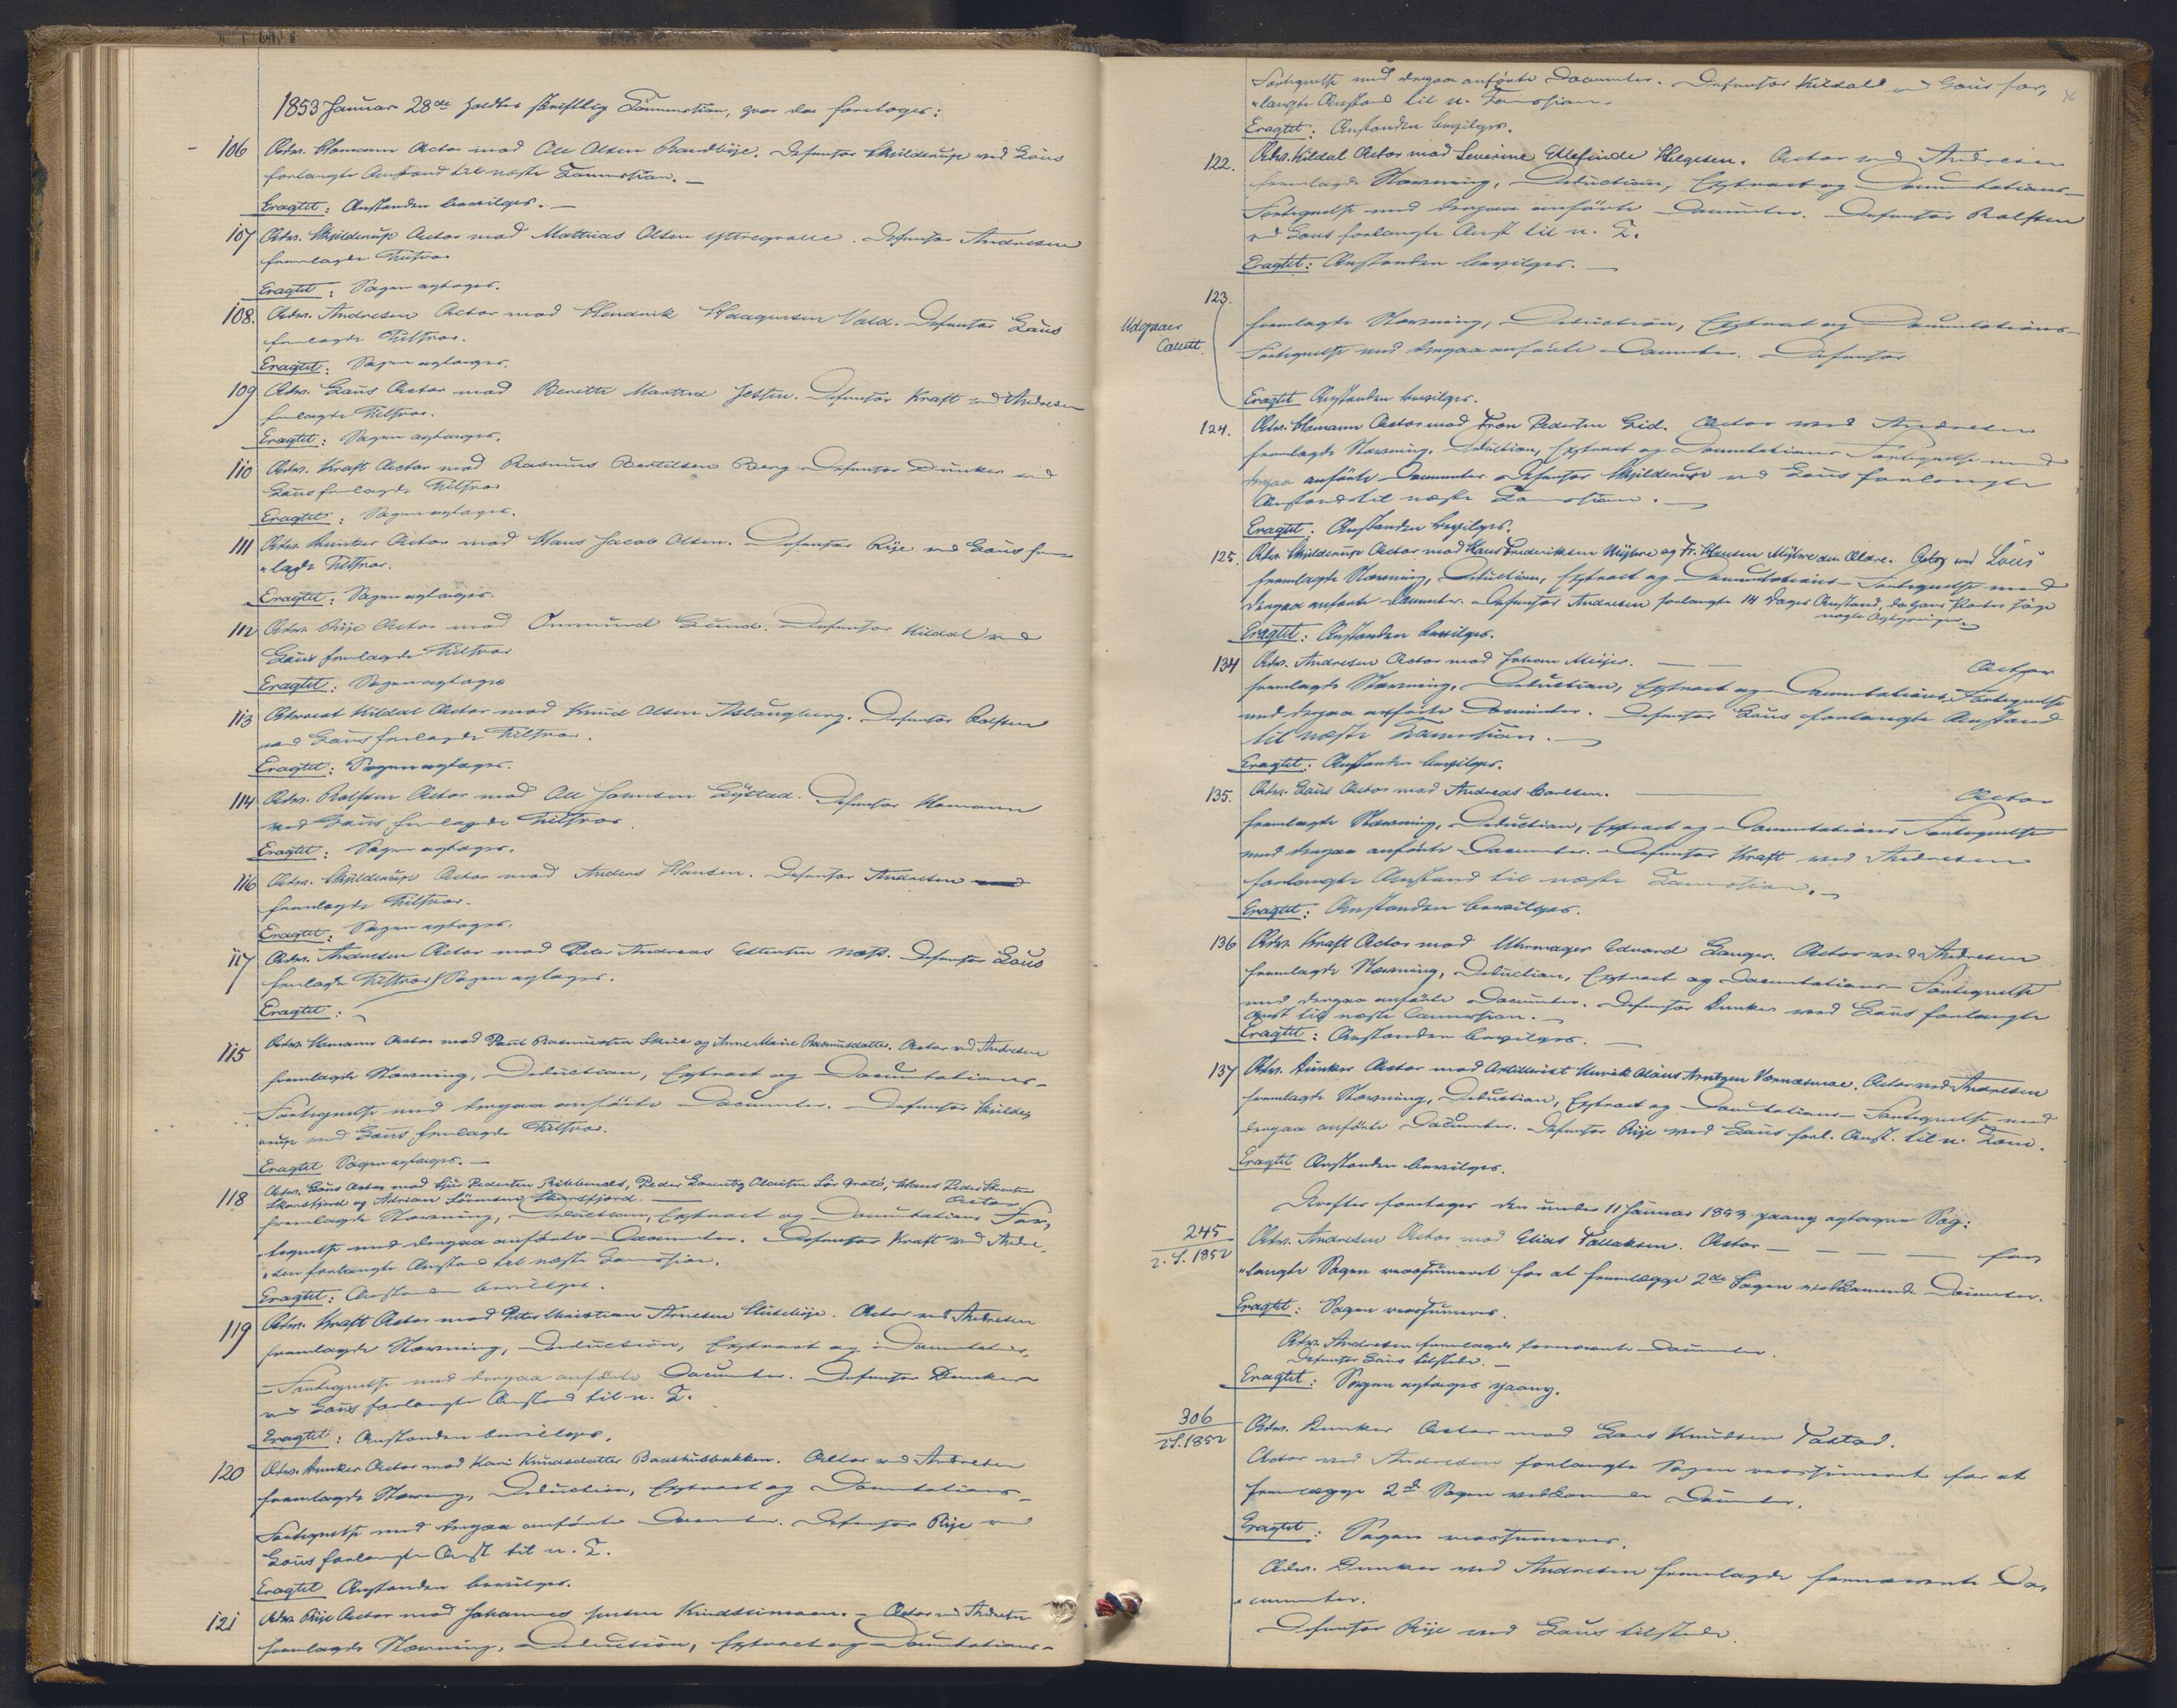 1853 Januar 28de holdtes skriftlig Tamperretten, hvor da foretoges:
106 Adv. Homann Actor mod Ole Olsen Randbye. Defensor Skjilderup ved Gaus
forlangte Anstand til næste
Eragtet: Anstanden bevilges. —
107 Adv. Skjilderup Actor mod Mathias Olsen Yttregrave. Defensor Andresen
fremlagde Tilsvar
Eragtet: Sagen optages.
108. Adv. Andresen Actor mod Hendrik Haagensen Vald. Defensor Gaus
fremlagde Tilsvar.
Eragtet: Sagen optages.
109 Adv. Gaus Actor mod Berette Martha Jessen. Defensor Kraft ved Andresen
fremlagde Tilsvar.
Eragtet: Sagen optages.
110 Adv. Kraft Actor mod Rasmus Bertilsen Berg. Defensor Dunker ved
Gaus fremlagde Tilsvar
Eragtet: Sagen optages.
111 Adv. Dunker Actor mod Hans Jacob Olsen. Defensor Rije ved Gaus frem-
„lagde Tilsvar.
Eragtet: Sagen optages.
112 Adv. Rije Actor mod Ommund Lund. Defensor Kildal ved
Gaus fremlagde Tilsvar
Eragtet: Sagen optages
113 Advocat Kildal Actor mod Knud Olsen Aslaugberg. Defensor Rolfsen
ved Gaus fremlagde Tilsvar.
Eragtet: Sagen optages.
114 Adv. Rolfsen Actor mod Ole Johnsen Lÿstad. Defensor Homann
ved Gaus fremlagde Tilsvar.
Eragtet: Sagen optages.
116 Adv. Skjilderup Actor mod Anders Hansen. Defensor Andresen
fremlagde Tilsvar.
Eragtet: Sagen optages.
117 Adv. Andresen Actor mod Peter Andreas Ellertsen Næss. Defensor Gaus
fremlagde Tilsvar / Sagen optages.
Eragtet:
115 Adv. Homann Actor mod Paul Rasmussen Skrue og Anne Marie Rasmusdatter. Actor ved Andresen
fremlagde Stævning, Deduction, Extract og Documentations-
Fortegnelse med derpaa anførte Documenter. Defensor Skjilde,
„rup ved Gaus fremlagde Tilsvar.
Eragtet Sagen optages. —
118 Adv. Gaus Actor mod Peder Lorentz Olaisen Hans Peder Sørensen
Skarsfjord og Adrian Sørensen Skarsfjord. — Actor
fremlagde Stævning, Deduction, Extract og Documentations For,
„tegnelse med derpaa anførte Documenter. Defensor Kraft ved Andre,
„sen forlangte Anstand til næste
Eragtet: Anstanden bevilges.
119 Adv. Kraft Actor mod Peter Christian Arnesen Actor ved Andresen
fremlagde Stævning, Deduction, Extract og Documentations,
-Fortegnelse med derpaa anførte Documenter. Defensor Dunker
ved Gaus forlangte Anstand til n. T.
Eragtet: Anstanden bevilges.
120 Adv. Dunker Actor mod Kari Knudsdatter Baashusbakken. Actor ved Andresen
fremlagde Stævning, Deduction, Extract og Documentations-
Fortegnelse med derpaa anførte Documenter. Defensor Rije ved
Gaus forlangte Anst til n. T.
Eragtet Anstanden bevilges.
121 Adv. Rije Actor mod Johannes Jensen — Actor ved Andresen
fremlagde Stævning, Deduction, Extract og Documentations-
Fortegnelse med derpaa anførte Documenter. Defensor Kildal ved Gaus for,
„langte Anstand til n.
Eragtet: Anstanden bevilges.
122. Adv. Kildal Actor mod Severine Ellefinde Helgesen. Actor ved Andresen
fremlagde Stævning, Deduction, Extract og Documentations-
Fortegnelse med derpaa anførte Documenter. Defensor Rolfsen
ved Gaus forlangte Anst. til n. T.
Eragtet: Anstanden bevilges. —
123.
Udgaaer
fremlagde Stævning, Deduction, Extract og Documentations-
Fortegnelse med derpaa anførte Documenter. Defensor
Eragtet Anstanden bevilges.
124. Adv. Homann Actor mod Tron Pedersen Lid. Actor ved Andresen
fremlagde Stævning, Deduction, Extract og Documentations Fortegnelse med
derpaa anførte Documenter. Defensor Skjilderup ved Gaus forlangte
Anstand til næste
Eragtet: Anstanden bevilges.
125. Adv. Skjilderup Actor mod Hans Frederiksen Myhre og Fr. Hansen Myhre den Ældre. Actor ved Gaus
fremlagde Stævning, Deduction, Extract og Documentations-Fortegnelse med
derpaa anførte Documenter. Defensor Andresen forlangte 14 Dages Anstand, da hans Parter søge
nogle Oplysninger.
Eragtet: Anstanden bevilges.
134 Adv. Andresen Actor mod Johan Meijer. — — Actor
fremlagde Stævning, Deduction, Extract og Documentations-Fortegnelse
med derpaa anførte Documenter. Defensor Gaus forlangte Anstand
til næste
Eragtet: Anstanden bevilges.
135. Adv. Gaus Actor mod Andreas Carlsen. — Actor
fremlagde Stævning, Deduction, Extract og Documentations Fortegnelse
med derpaa anførte Documenter. Defensor Kraft ved Andresen
forlangte Anstand til næste
Eragtet: Anstanden bevilges.
136 Adv. Kraft Actor mod Uhrmager Edvard Langer. Actor ved Andresen
fremlagde Stævning, Deduction, Extract og Documentations-Fortegnelse
med derpaa anførte Documenter. Defensor Dunker ved Gaus forlangte
Anst til næste
Eragtet: Anstanden bevilges. —
137 Adv. Dunker Actor mod Artillerist Henrik Olaus Arntzen Værnæsmoe. Actor ved Andresen
fremlagde Stævning, Deduction, Extract og Documentations-Fortegnelse med
derpaa anførte Documenter. Defensor Rije ved Gaus forl. Anst. til n.
Eragtet Anstanden bevilges.
Derefter foretoges den under 11 Januar 1853 paany optagne Sag:
245
2. S. 1852
Adv. Andresen Actor mod Elias Tallaksen. Actor — — — for,
„langte Sagen reassumeret for at fremlægge 2de Sagen vedkommende Documenter.
Eragtet: Sagen reassumeres.
Adv. Andresen fremlagde fornævnte Documenter.
Defensor Gaus tilstede. —
Eragtet: Sagen optages paany.
306
2 S. 1852
Adv. Dunker Actor mod Lars Knudsen Tastad.
Actor ved Andresen forlangte Sagen reassumeret for at
fremlægge 2de Sagen vedkommende Documenter.
Eragtet: Sagen reassumeres.
Adv. Dunker ved Andresen fremlagde fornævnte Do,
„cumenter.
Defensor Rije ved Gaus tilstede.